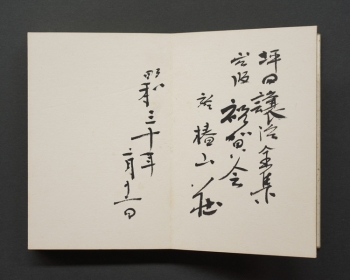 坪田譲治全集
出版祝賀会
於椿山荘
昭和三十年
二月十一日